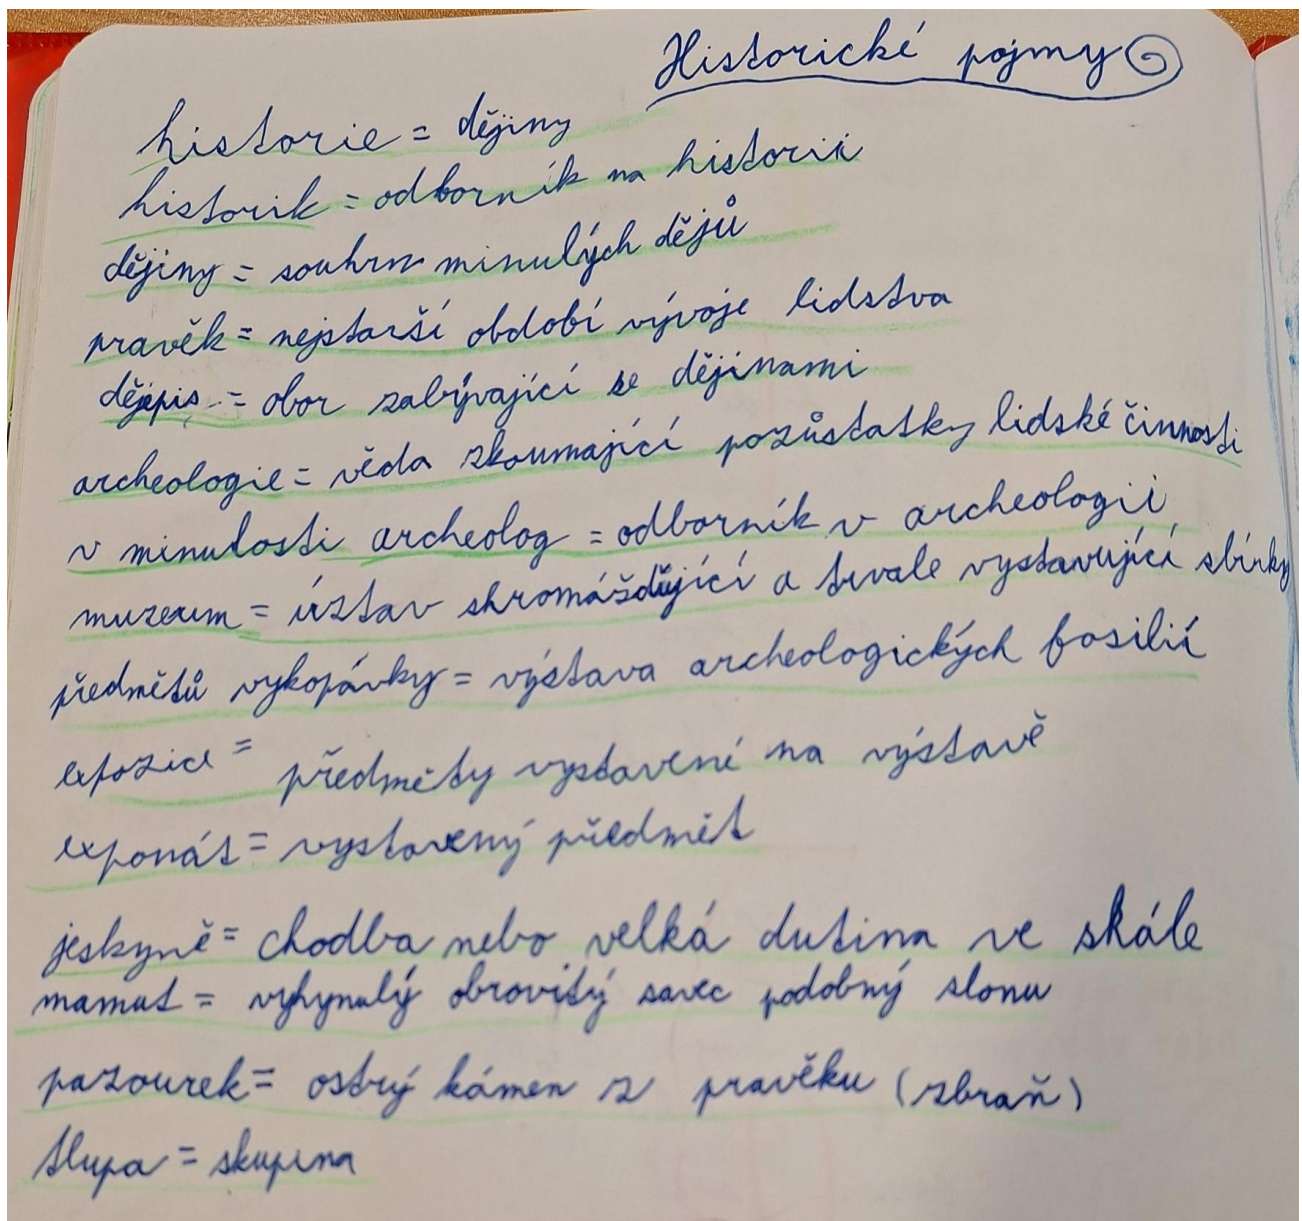 Historické pojmy
historie = dějiny
historik = odborník na historii
dějiny = souhrn minulých dějů
pravěk = nejstarší období vývoje lidstva
dějepis = obor zabývající se dějinami
archeologie = věda zkoumající pozůstatky lidské činnosti
v minulosti archeolog = odborník v archeologii
muzeum = ústav shromážďující a trvale vystavující sbírky
předmětů vykopávky = výstava archeologických fosilií
expozice = předměty vystavené na výstavě
exponát = vystavený předmět
jeskyně = chodba nebo velká dutina ve skále
mamut = vyhynulý obrovitý savec podobný slonu
pazourek = ostrý kámen z pravěku (zbraň)
tlupa = skupina